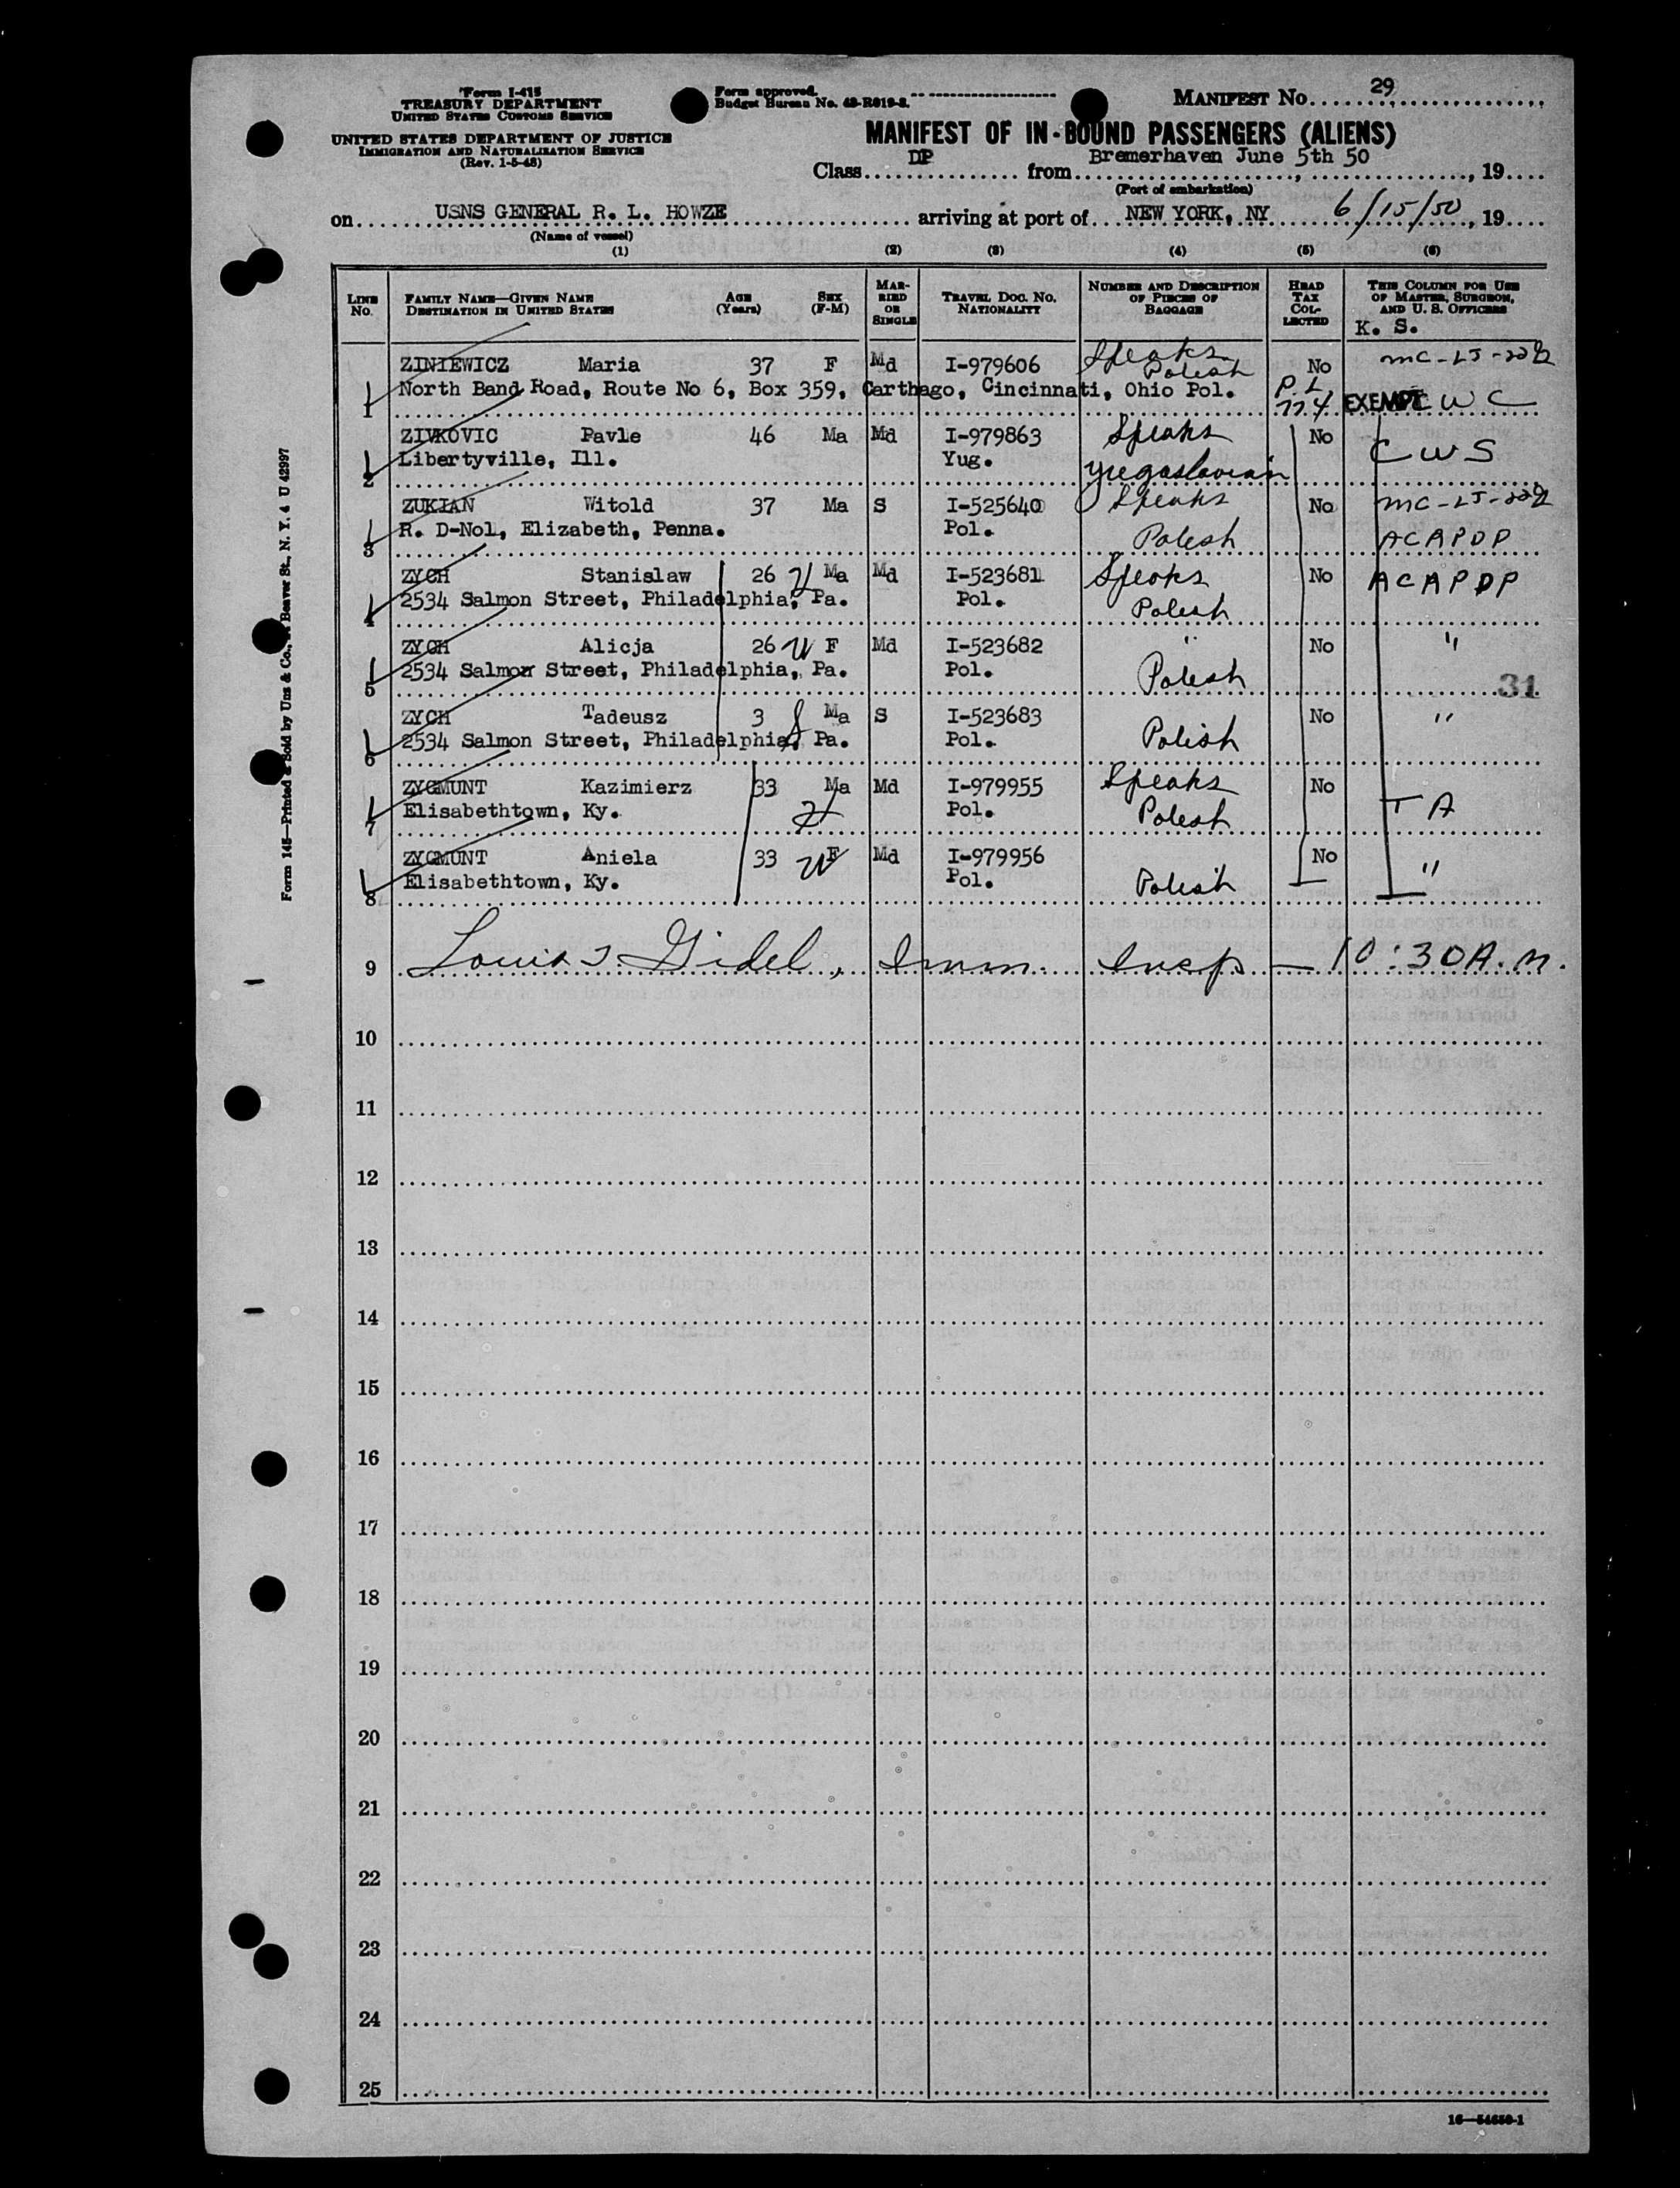 Form I-415
TREASURY DEPARTMENT
UNITED STATES CUSTOMS SERVICE
UNITED STATES DEPARTMENT OF JUSTICE
IMMIGRATION AND NATURALIZATION SERVICE
(Rev. 1-5-48)
Form approved.
Budget Bureau No. 43-R019-2.
MANIFEST No. 29
MANIFEST OF IN-BOUND PASSENGERS (ALIENS)
Class DP from Bremerhaven June 5th 50, 19
(Port of embarkation)
on USNS GENERAL R. L. HOWZE arriving at port of NEW YORK, NY 6/15/50, 19
(Name of vessel)
(1) (2) (3) (4) (5) (6)
LINE No. FAMILY NAME—GIVEN NAME DESTINATION IN UNITED STATES AGE (Years) SEX (F-M) MARRIED OR SINGLE TRAVEL DOC. No. NATIONALITY NUMBER AND DESCRIPTION OF PIECES OF BAGGAGE HEAD TAX COLLECTED THIS COLUMN FOR USE OF MASTER, SURGEON, AND U. S. OFFICERS
K. S.
ZINIEWICZ Maria 37 F Md I-979606 Speaks Polish No
1 North Band Road, Route No 6, Box 359, Carthago, Cincinnati, Ohio Pol. P.L. 774 EXEMPT C W C
ZIVKOVIC Pavle 46 Ma Md I-979863 Speaks No C W S
2 Libertyville, Ill. Yug. Yugoslavian
ZUKIAN Witold 37 Ma S I-525640 Speaks No
3 R. D-No1, Elizabeth, Penna. Pol. Polish A C A P D P
ZYCH Stanislaw 26 Ma Md I-523681 Speaks No A C A P D P
4 2534 Salmon Street, Philadelphia, Pa. Pol. Polish
ZYCH Alicja 26 F Md I-523682 " No "
5 2534 Salmon Street, Philadelphia, Pa. Pol. Polish
31
ZYCH Tadeusz 3 Ma S I-523683 No "
6 2534 Salmon Street, Philadelphia, Pa. Pol. Polish
ZYGMUNT Kazimierz 33 Ma Md I-979955 Speaks No T A
7 Elisabethtown, Ky. Pol. Polish
ZYGMUNT Aniela 33 F Md I-979956 No "
8 Elisabethtown, Ky. Pol. Polish
9 Louis J. Gidel, Imm. Insp — 10:30 A.M.
10
11
12
13
14
15
16
17
18
19
20
21
22
23
24
25
16—54650-1
Form 145—Printed & Sold by Unz & Co., Beaver St., N. Y. 4 U 42997